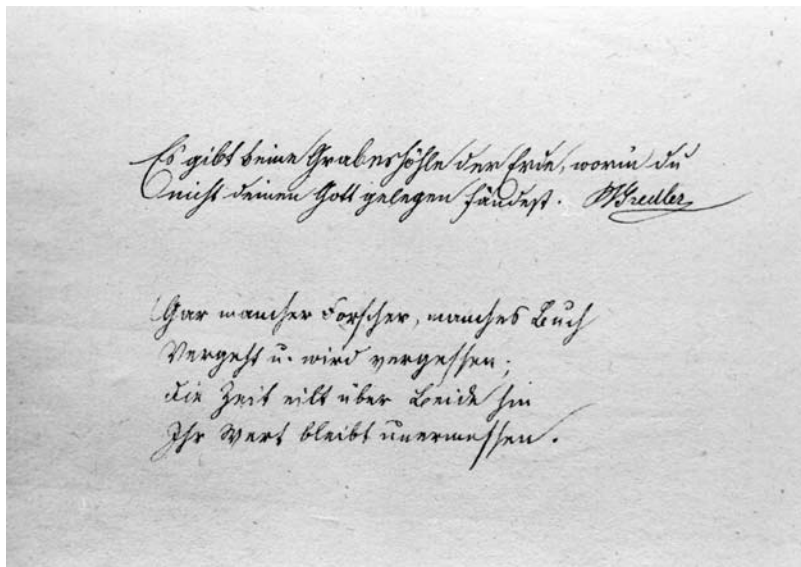 Es gibt keine Grabeshöhle der Erde, worin du
nicht deinen Gott gelegen fändest. Gredler
Gar mancher Forscher, manches Buch
Vergeht u. wird vergessen;
die Zeit eilt über Beide hin
Ihr Wert bleibt unermessen.